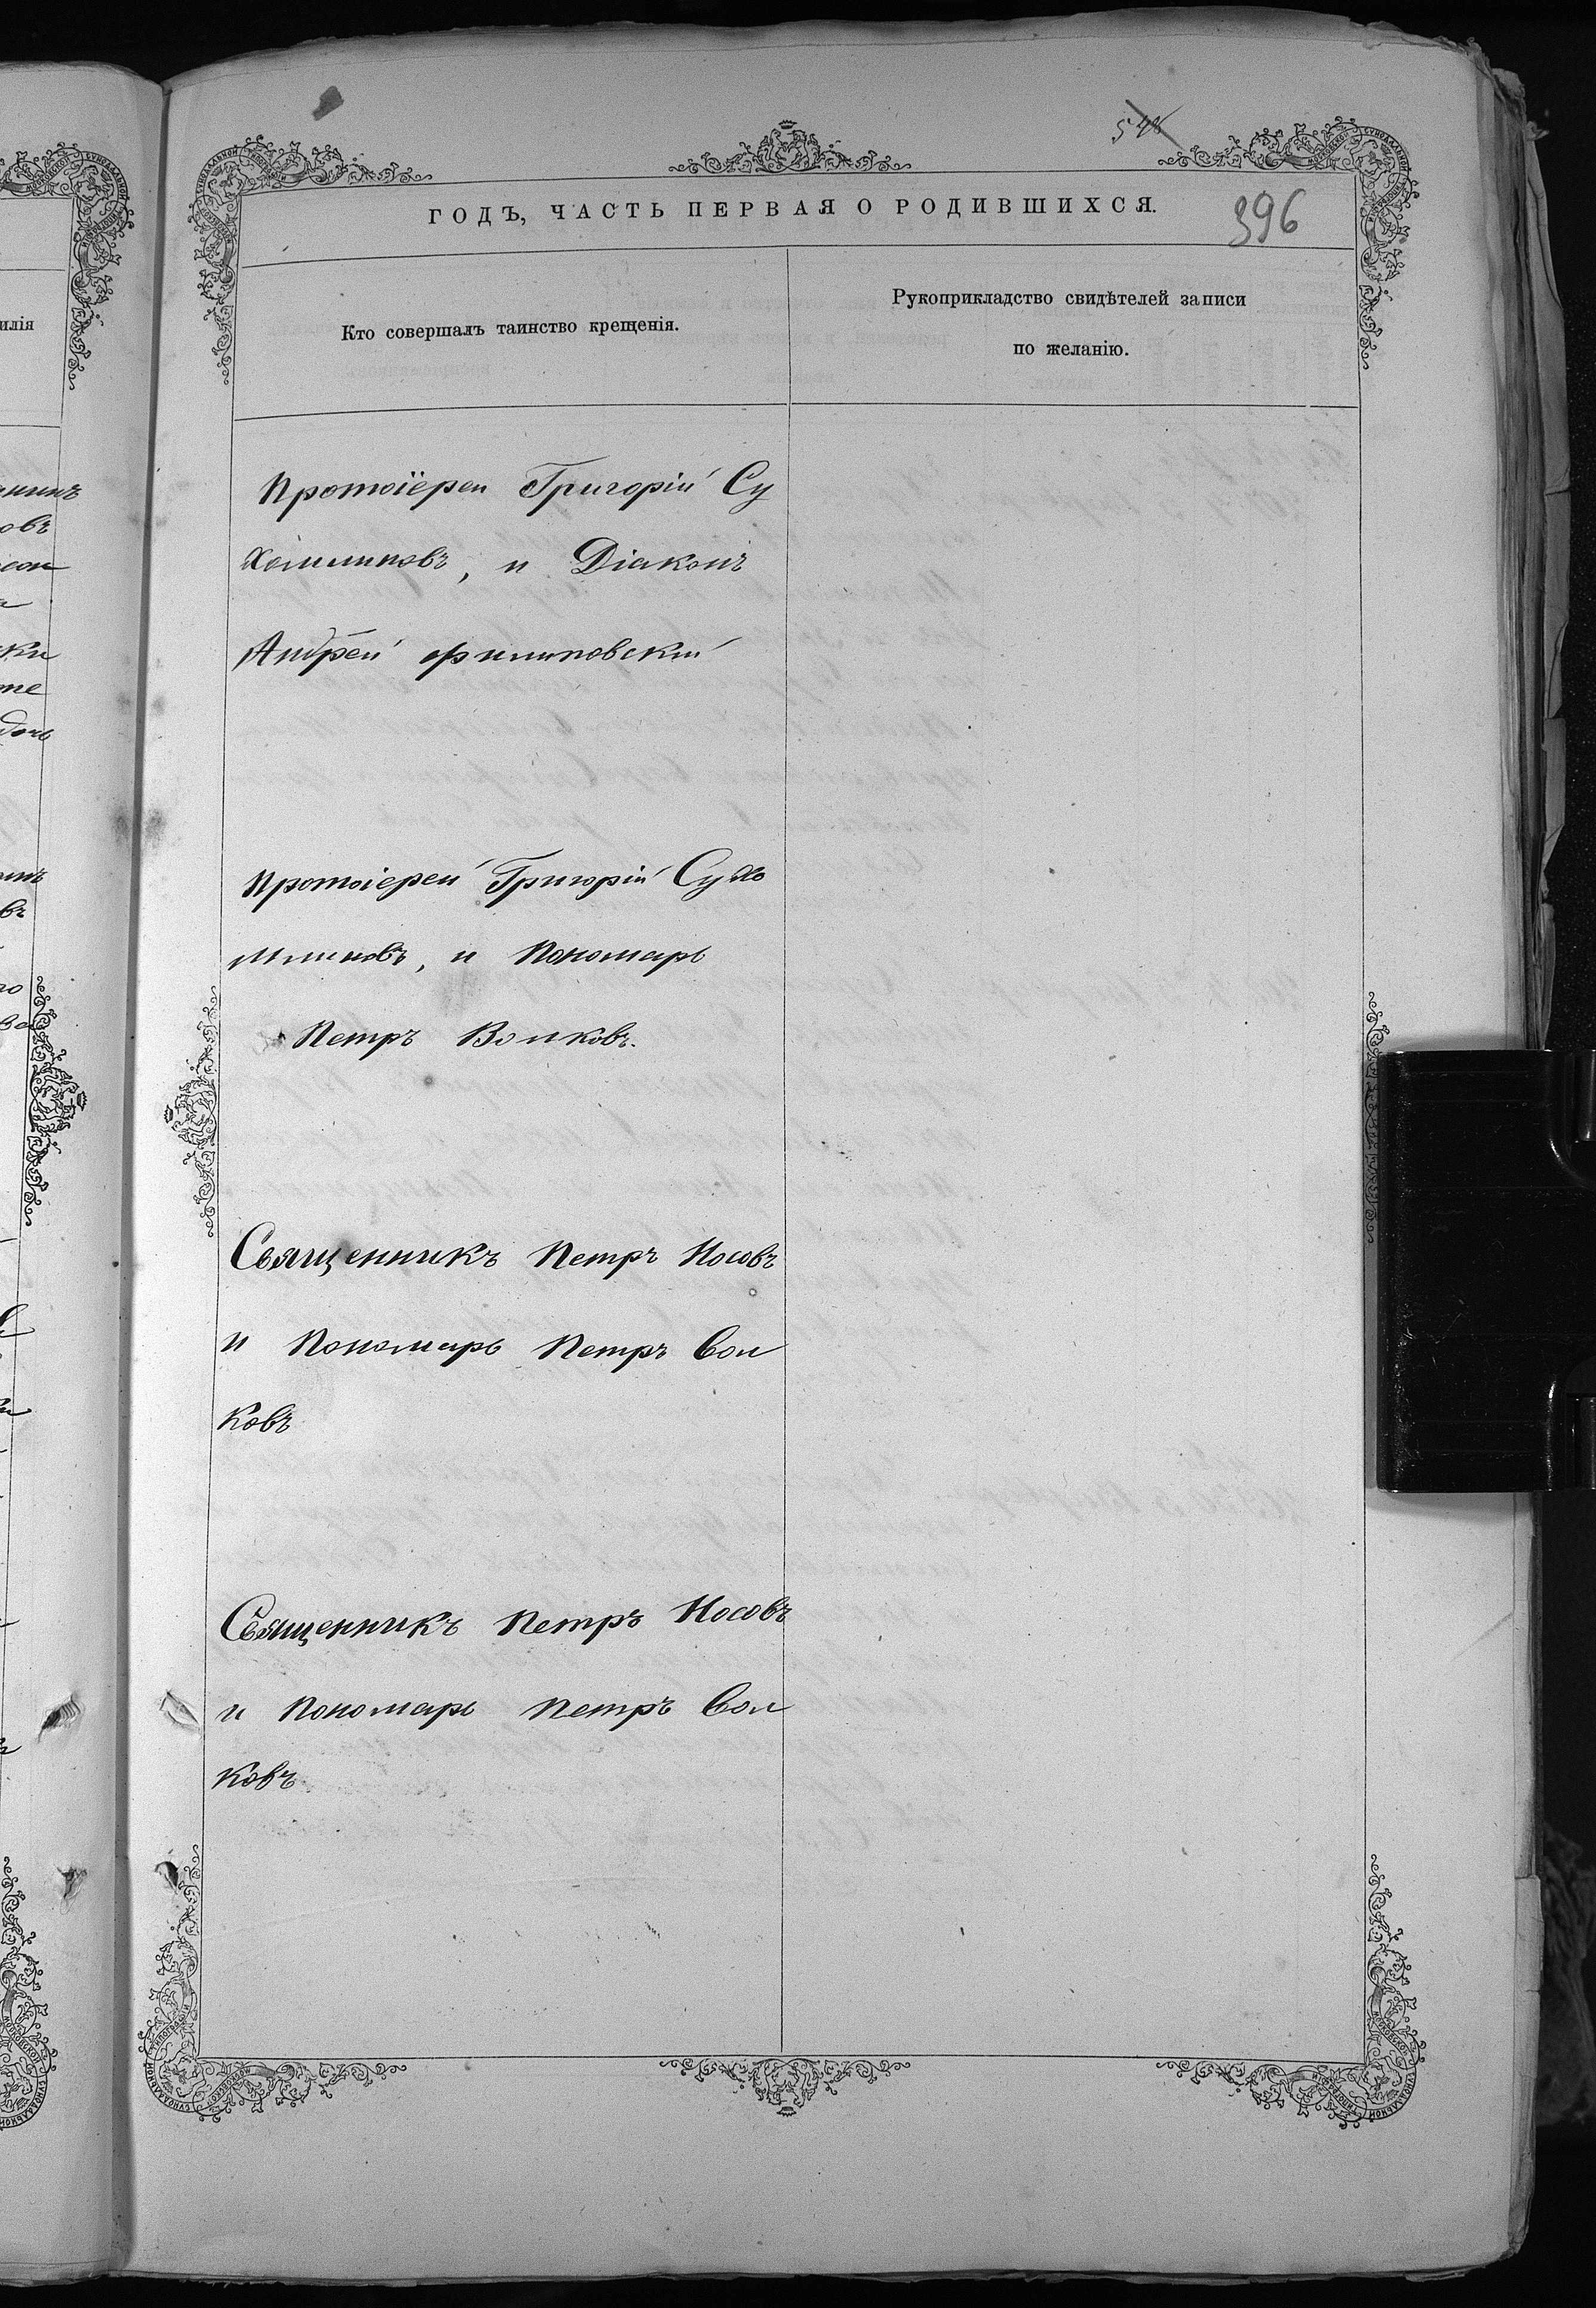 546
ГОДЪ, ЧАСТЬ ПЕРВАЯ О РОДИВШИХСЯ.
396
Кто совершалъ таинство крещенія.
Рукоприкладство свидѣтелей записи
по желанію.
Протоіерей Григорій Су
хомлиновъ, и Діаконъ
Андрей Филиповскій
Протоіерей Григорій Сухо
млиновъ, и Пономарь
Петръ Волковъ.
Священникъ Петръ Носовъ
и Пономарь Петръ Вол
ковъ
Священникъ Петръ Носовъ
и Пономарь Петръ Вол
ковъ.